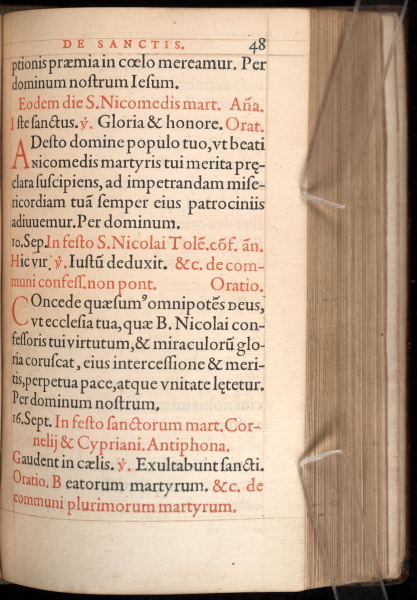 DE SANCTIS. 48
ptionis præmia in cœlo mereamur. Per
dominum nostrum Iesum.
Eodem die S. Nicomedis mart. Aña.
Iste sanctus. ℣. Gloria & honore. Orat.
ADesto domine populo tuo, vt beati
Nicomedis martyris tui merita pręclara
suscipiens, ad impetrandam misericordiam
tuã semper eius patrociniis
adiuuemur. Per dominum.
10. Sep. In festo S. Nicolai Tolẽ. cõf. ãn.
Hic vir. ℣. Iustũ deduxit. &c. de communi
confess. non pont. Oratio.
COncede quæsumꝰ omnipotẽs Deus,
vt ecclesia tua, quæ B. Nicolai confessoris
tui virtutum, & miraculorũ gloria
coruscat, eius intercessione & meritis,
perpetua pace, atque vnitate lętetur.
Per dominum nostrum.
16. Sept. In festo sanctorum mart. Cornelij
& Cypriani. Antiphona.
Gaudent in cælis. ℣. Exultabunt sancti.
Oratio. Beatorum martyrum. &c. de
communi plurimorum martyrum.